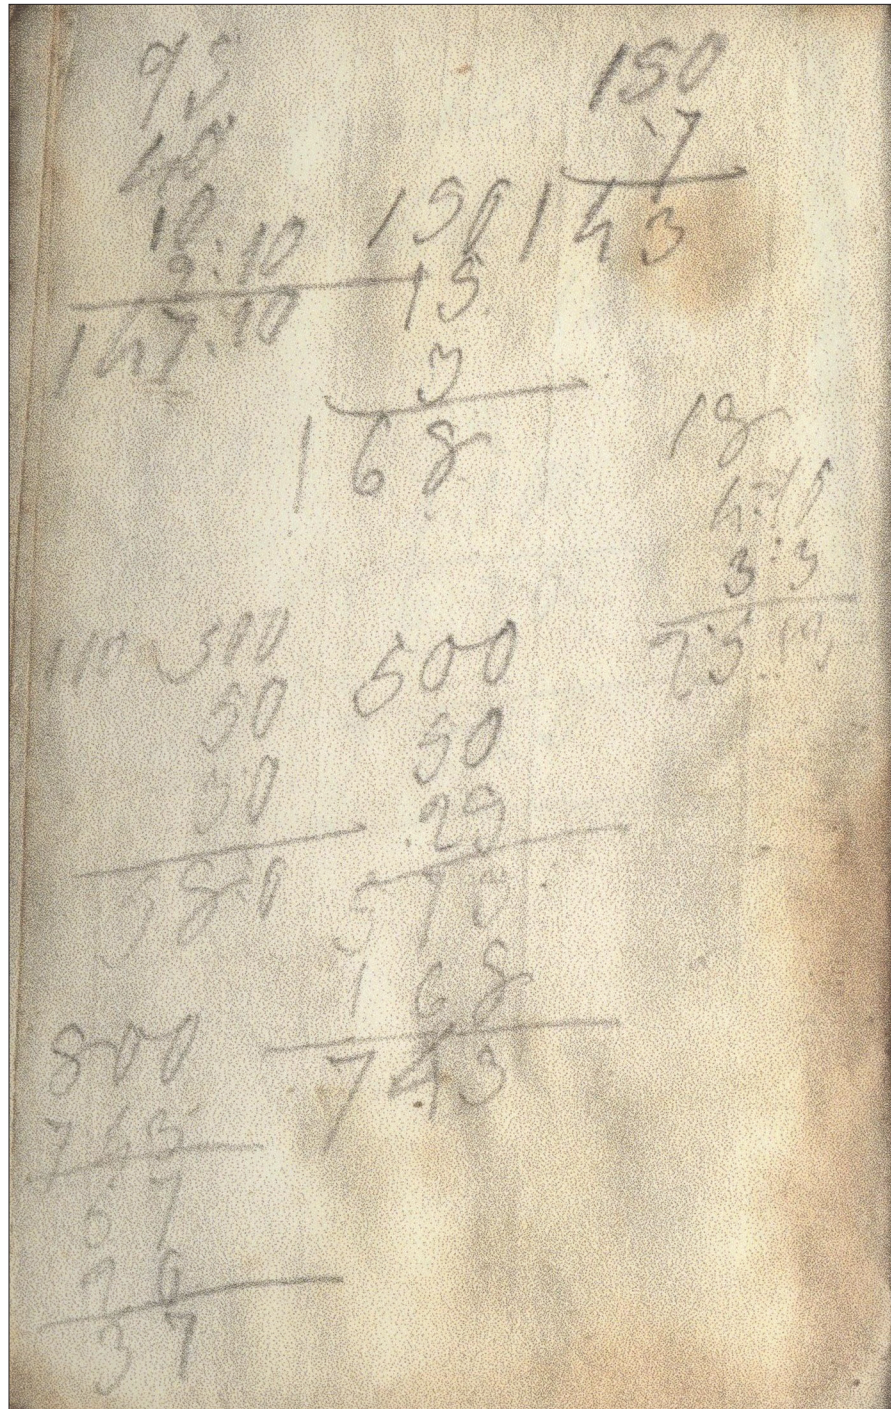 95
40
10
2:10
147:10
150
7
143
150
15
3
168
18
4:16
3:3
25:19
110 500
50
30
580
500
50
25
575
168
743
800
743
57
20
37